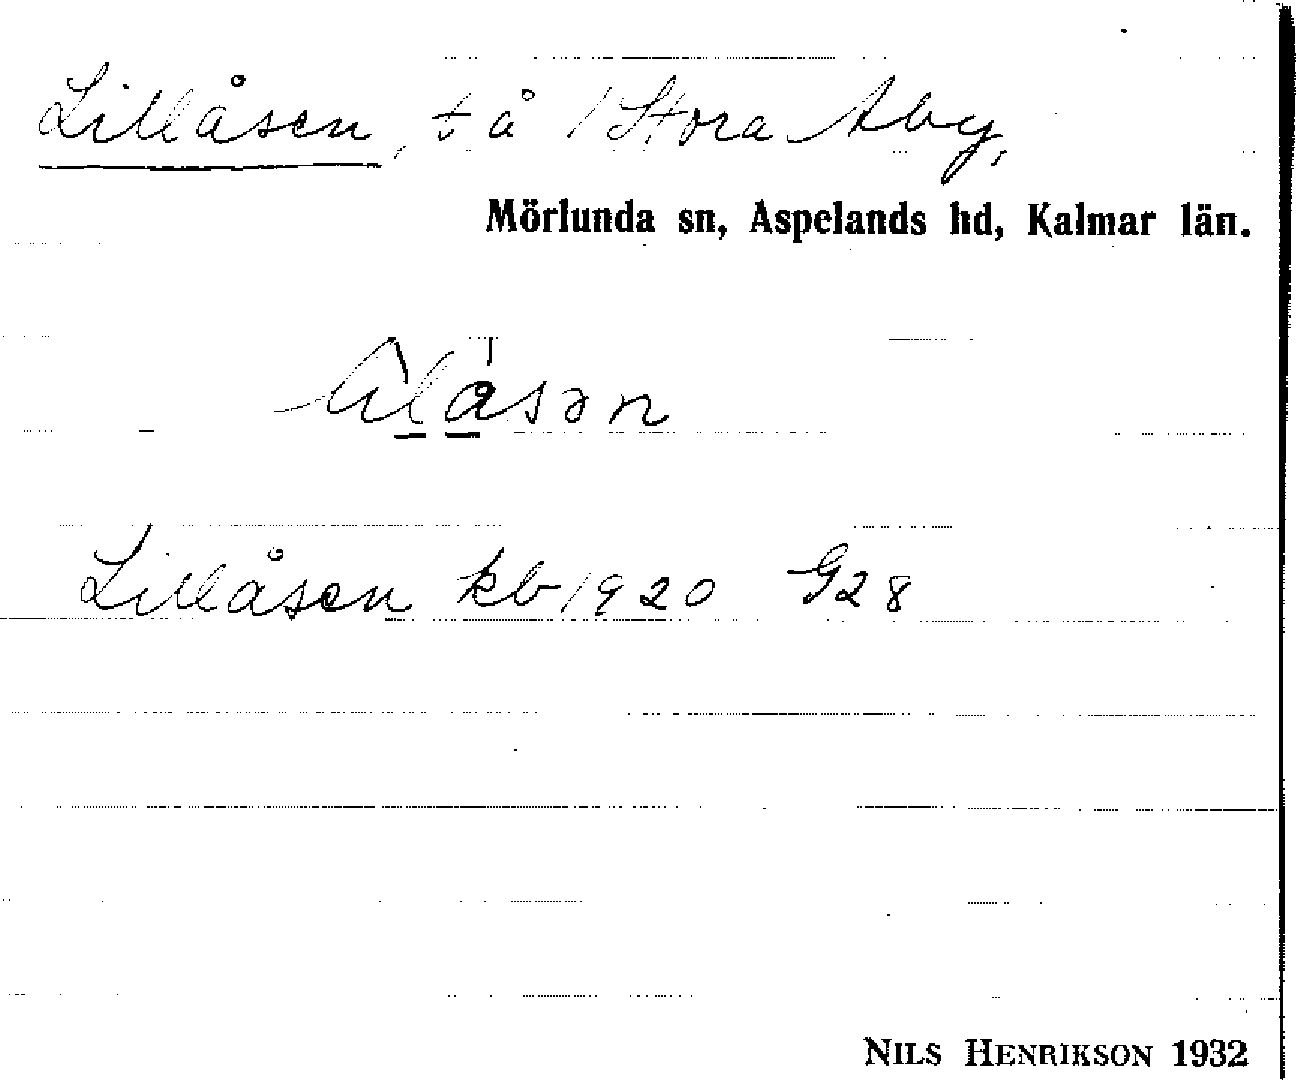 Lillåsen, t å 1 Stora Åby,
Mörlunda sn, Aspelands hd, Kalmar län.
Lillåsen kb 1920 G28
NILS HENRIKSON 1932